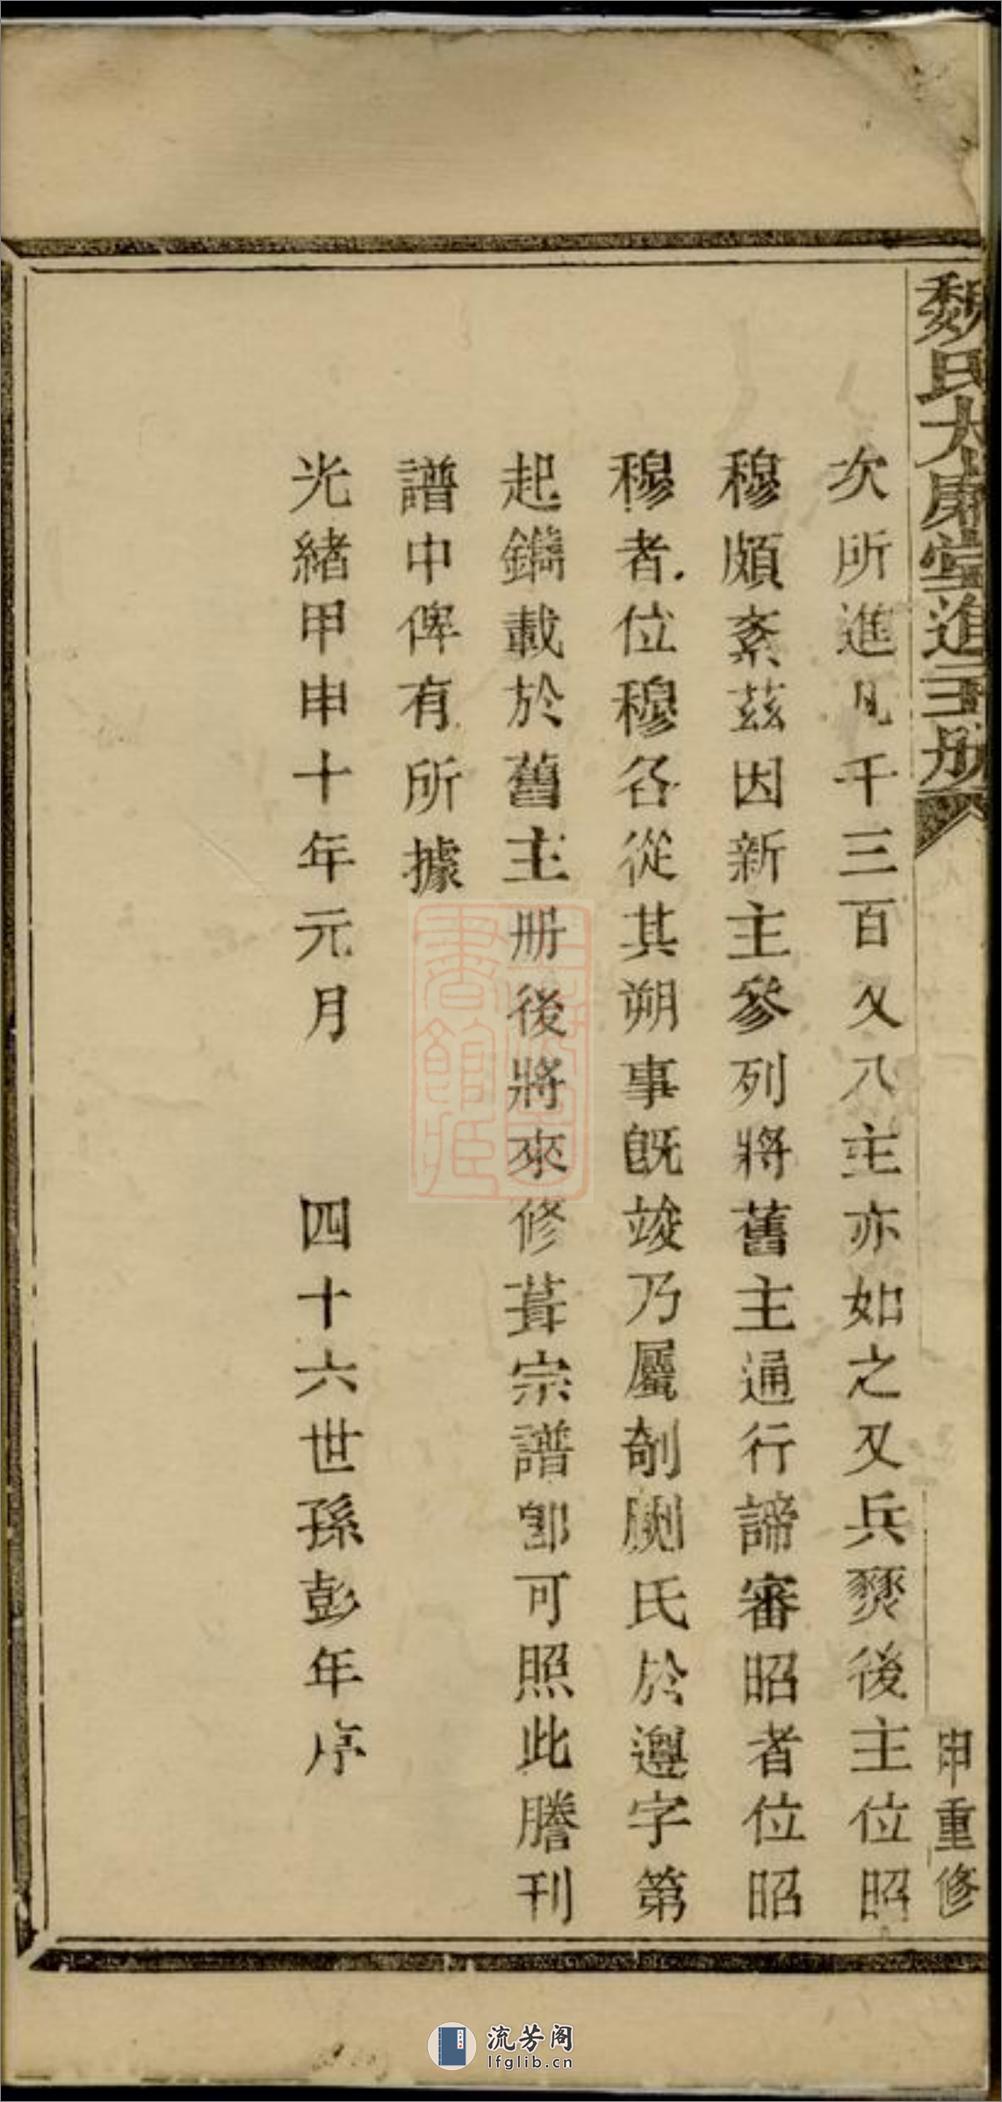 魏氏大廉堂進主册
申重修
次所進凡千三百又八主亦如之又兵燹後主位昭
穆頗紊茲因新主參列將舊主通行諦審昭者位昭
穆者位穆各從其朔事既竣乃屬剞劂氏於遵字第
起鐫載於舊主册後將來修葺宗譜卽可照此謄刊
譜中俾有所據
光緒甲申十年元月 四十六世孫彭年序
書館藏
流芳阁
lfglib.cn